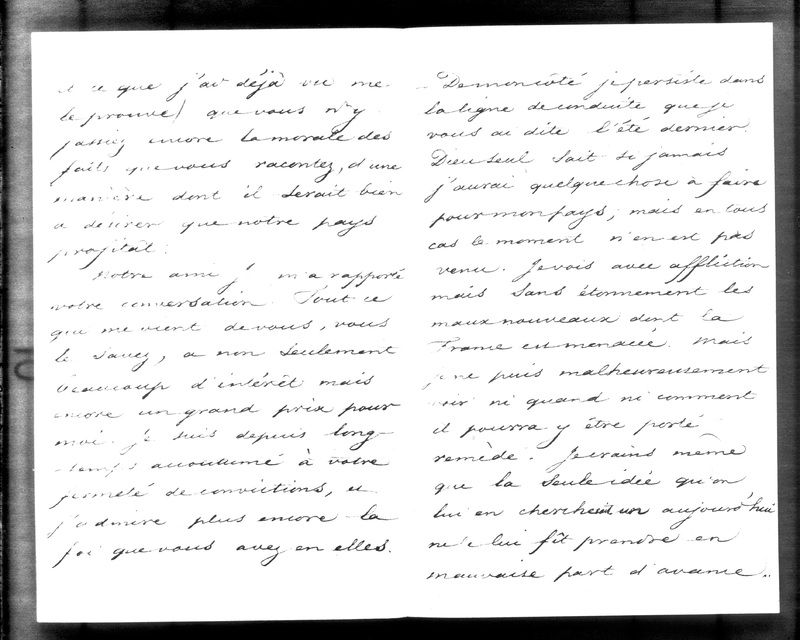 et ce que j'ai déjà vu me
le prouve) que vous n'y
passiez encore la morale des
faits que vous racontez, d'une
manière dont il serait bien
à désirer que notre pays
profitât.
Notre ami J. m'a rapporté
votre conversation. Tout ce
qui me vient de vous, vous
le savez, a non seulement
beaucoup d'intérêt mais
encore un grand prix pour
moi. Je suis depuis long-
temps accoutumé à votre
fermeté de convictions, et
j'admire plus encore la
foi que vous avez en elles.
De mon côté je persiste dans
la ligne de conduite que je
vous ai dite l'été dernier.
Dieu seul sait si jamais
j'aurai quelque chose à faire
pour mon pays; mais en tous
cas le moment n'en est pas
venu. Je vois avec affliction
mais sans étonnement les
maux nouveaux dont la
France est menacée. Mais
je ne puis malheureusement
voir ni quand ni comment
il pourra y être porté
remède. Je crains même
que la seule idée qu'on
lui en cherchait un aujourd'hui
ne le lui fît prendre en
mauvaise part d'avance..